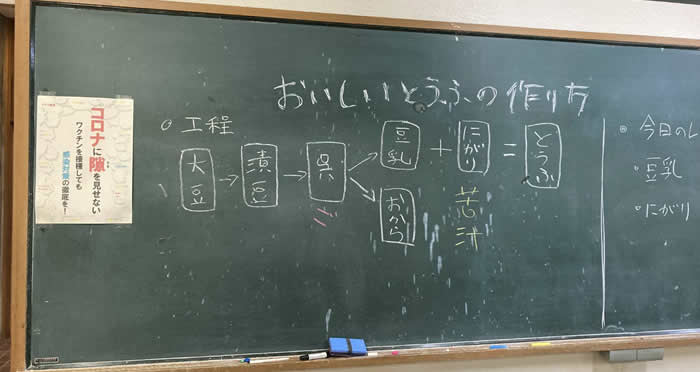 おいしいとうふの作り方
コロナに隙を見せない
ワクチンを接種しても
感染対策の徹底を!
◎工程
大豆→漬豆→呉
豆乳+にがり=とうふ
おから
苦汁
◎今日のレ
・豆乳
・にがり